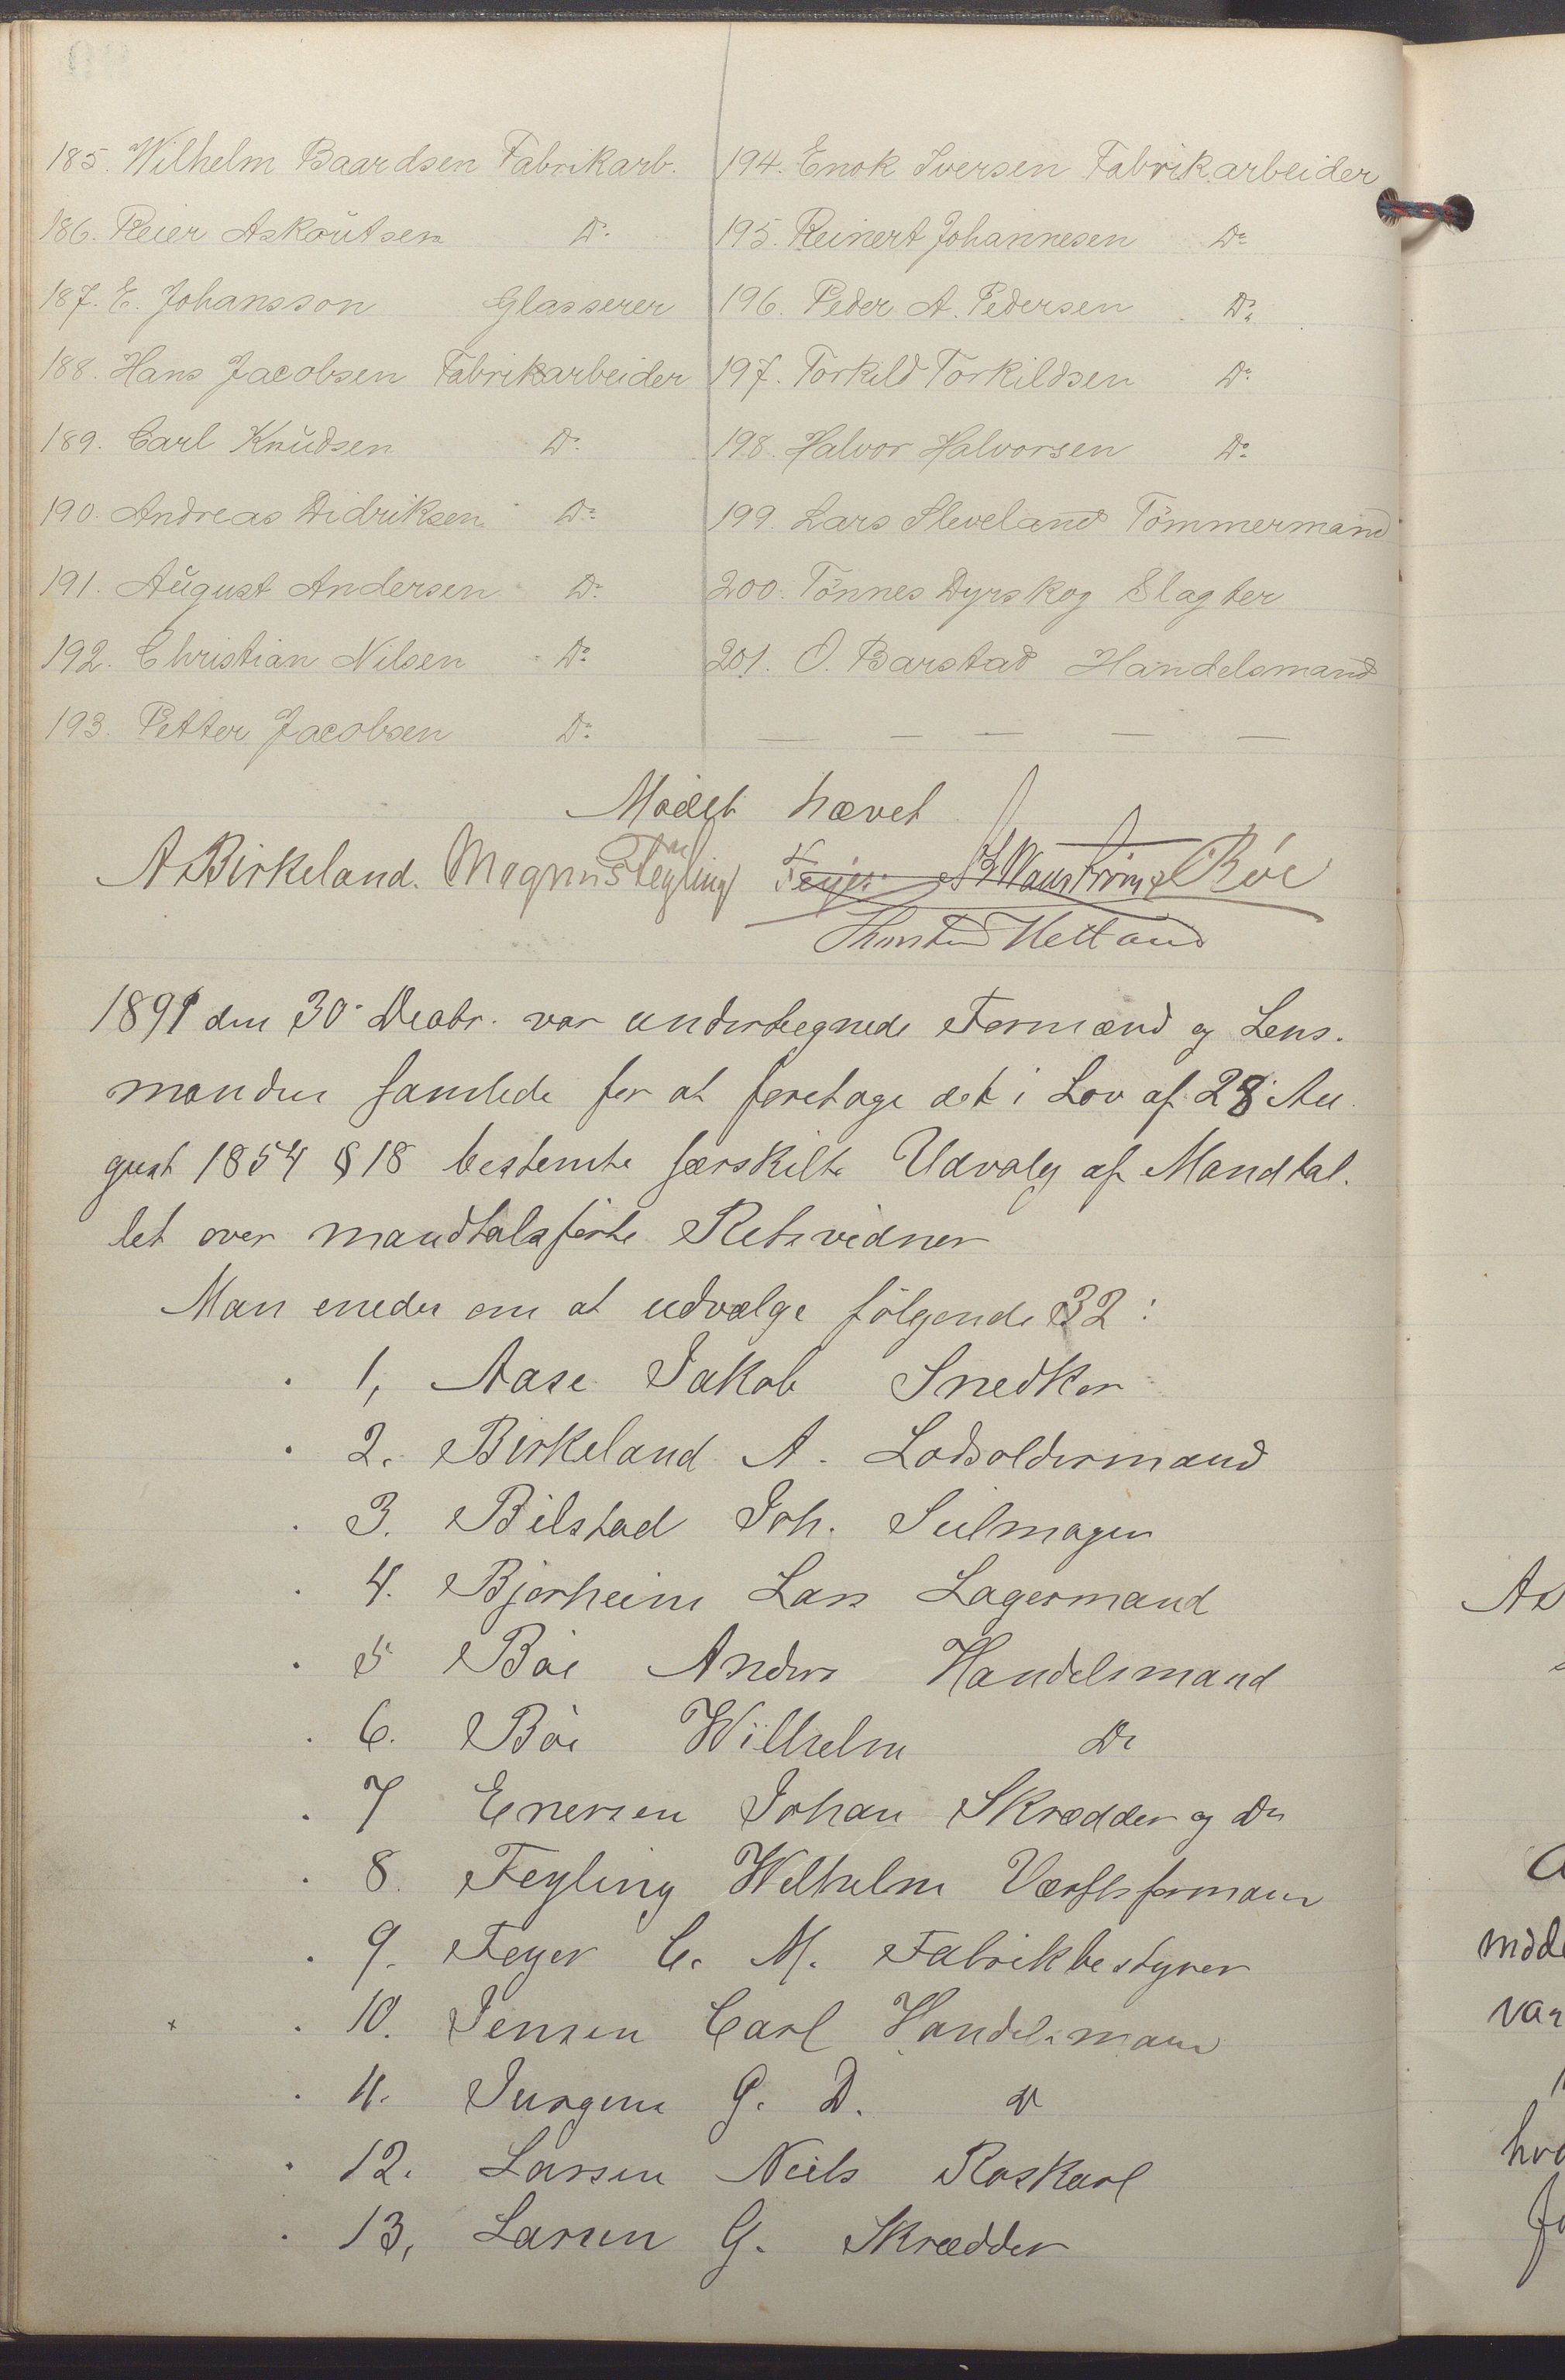 185. Wilhelm Baardsen Fabrikarb.
186. Reier Askoutsen Do
187. E. Johansson Glasserer
188. Hans Jacobsen Fabrikarbeider
189. Carl Knudsen Do
190. Andreas Didriksen Do
191. August Andersen Do
192. Christian Nilsen Do
193. Petter Jacobsen Do
194. Enok Iversen Fabrikarbeider
195. Reinert Johannesen Do
196. Peder A. Pedersen Do
197. Torkild Torkildsen Do
198. Halvor Halvorsen Do
199. Lars Sleveland Tömmermand
200. Tönnes Dyrskog Slagter
201. O. Barstad Handelsmand
Mödet hævet
A Birkeland. Magnus Feyling Feyer Böe
Thorsten Hetland
1891 den 30 Decbr. var undertegnede Formænd og Lens.
manden samlede for at foretage det i Lov af 28 Au
gust 1854 § 18 bestemte særskilte Udvalg af Mandtal.
let over mandtalsførte Retsvidner
Man enedes om at udvælge fölgende 32:
1, Aase Jakob Snedker
2. Birkeland A. Lodsoldermand
3. Bilstad Joh. Seilmager
4. Bjorheim Lars Lagermand
5 Böe Anders Handelsmand
6. Böe Wilhelm Do
7 Enersen Johan Skrædder og Do
8. Feyling Wilhelm Værftsformann
9. Feyer C. M. Fabrikbestyrer
10. Jensen Carl Handelsmann
11. Jurgens G. D. do
12. Larsen Niels Roskarl
13, Larsen G. Skrædder